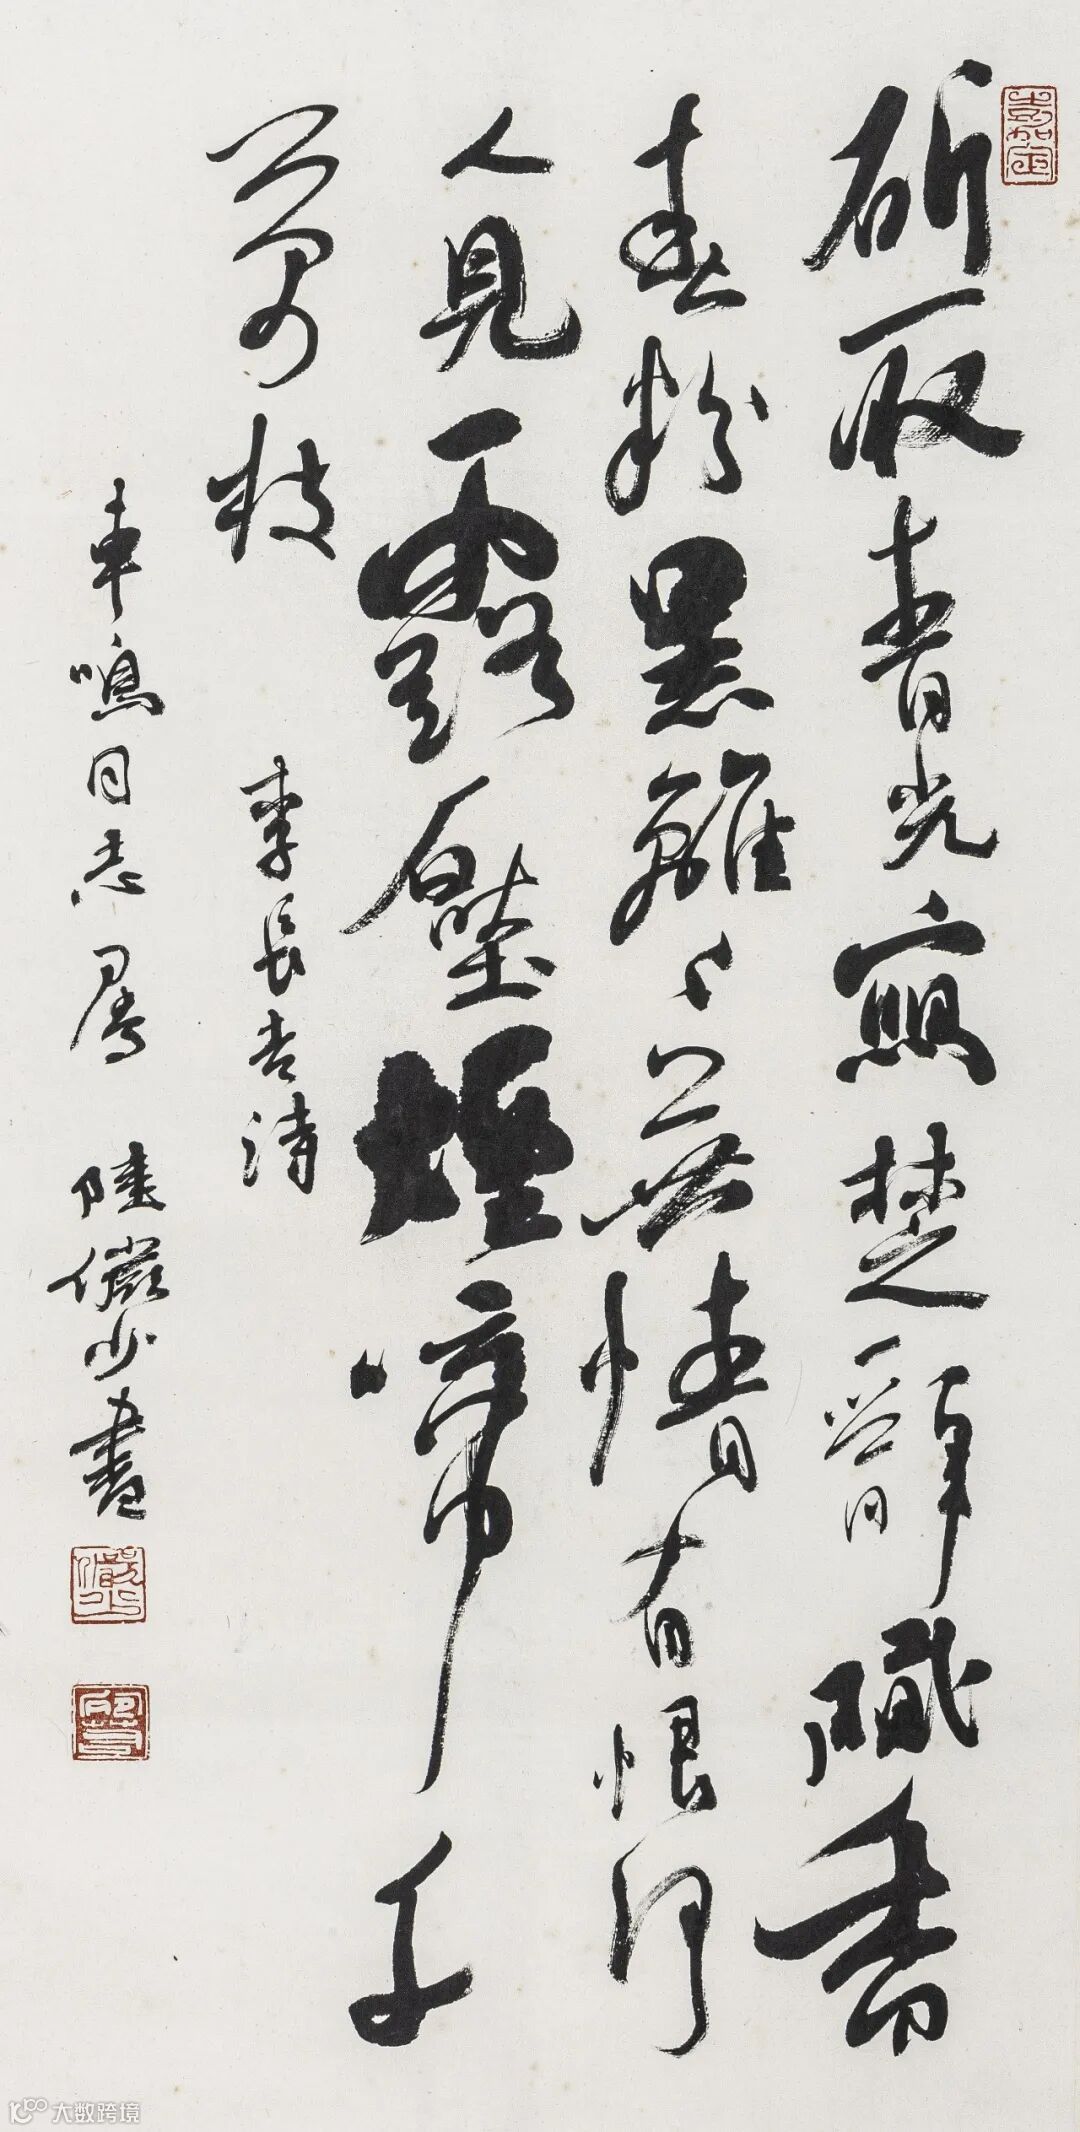 嘉定
斫取青光寫楚辭膩香
春粉黑離〻無情有恨何
人見露壓煙啼千
萬枝 李長吉詩
車鳴同志屬 陸儼少書
儼少
大数跨境